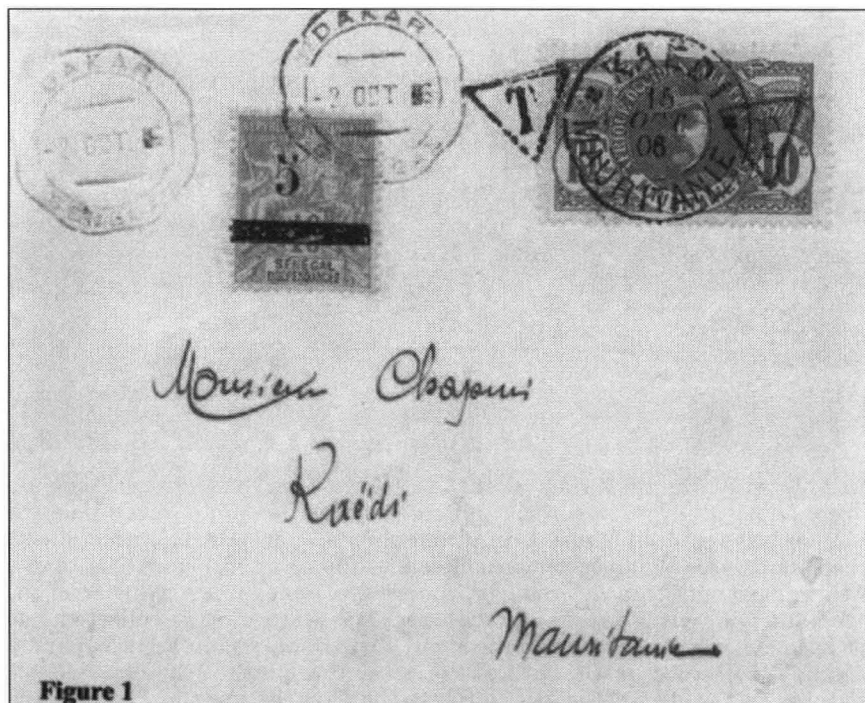 DAKAR
-2 OCT.
DAKAR
-2 OCT 06
T
KAEDI
15
OCT
06
MAURITANIE
10c
5
SÉNÉGAL
Monsieur
Kaëdi
Mauritanie
Figure 1